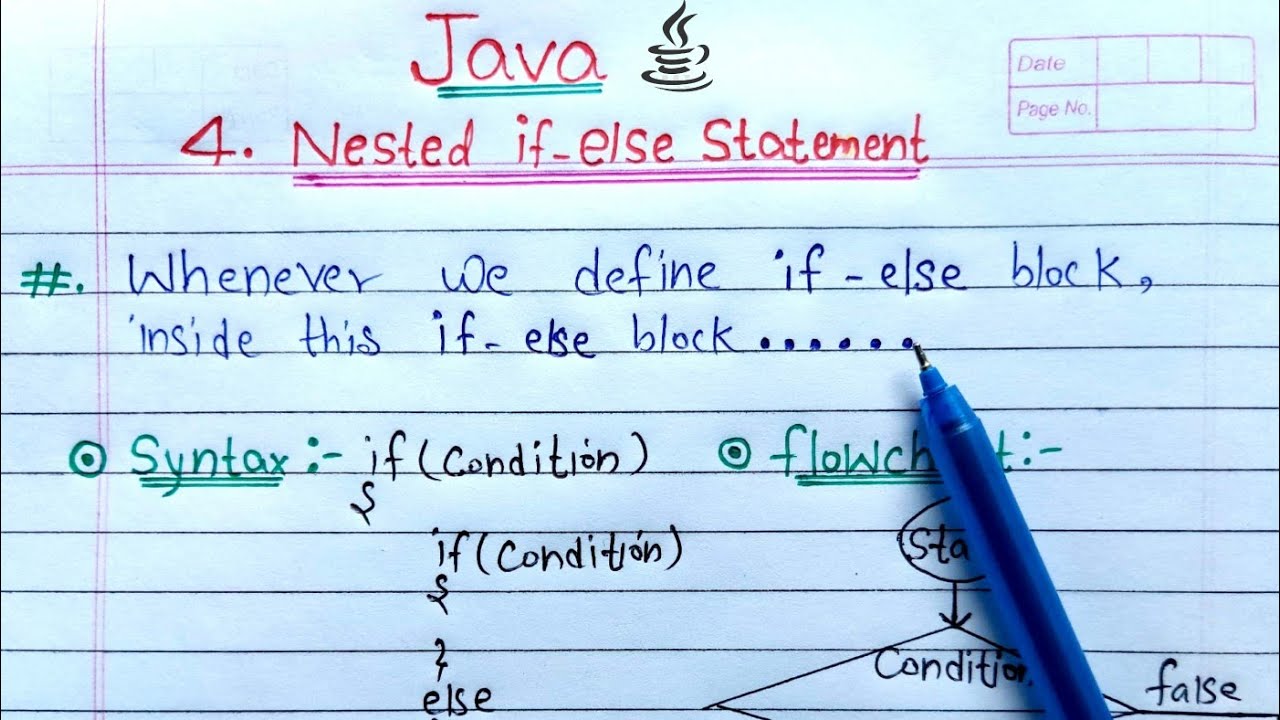 Java
Date
Page No.
4. Nested if-else Statement
#. Whenever we define if-else block,
inside this if-else block.......
Syntax:- if(Condition)
{
if(Condition)
{
}
else
:-
Condition
false